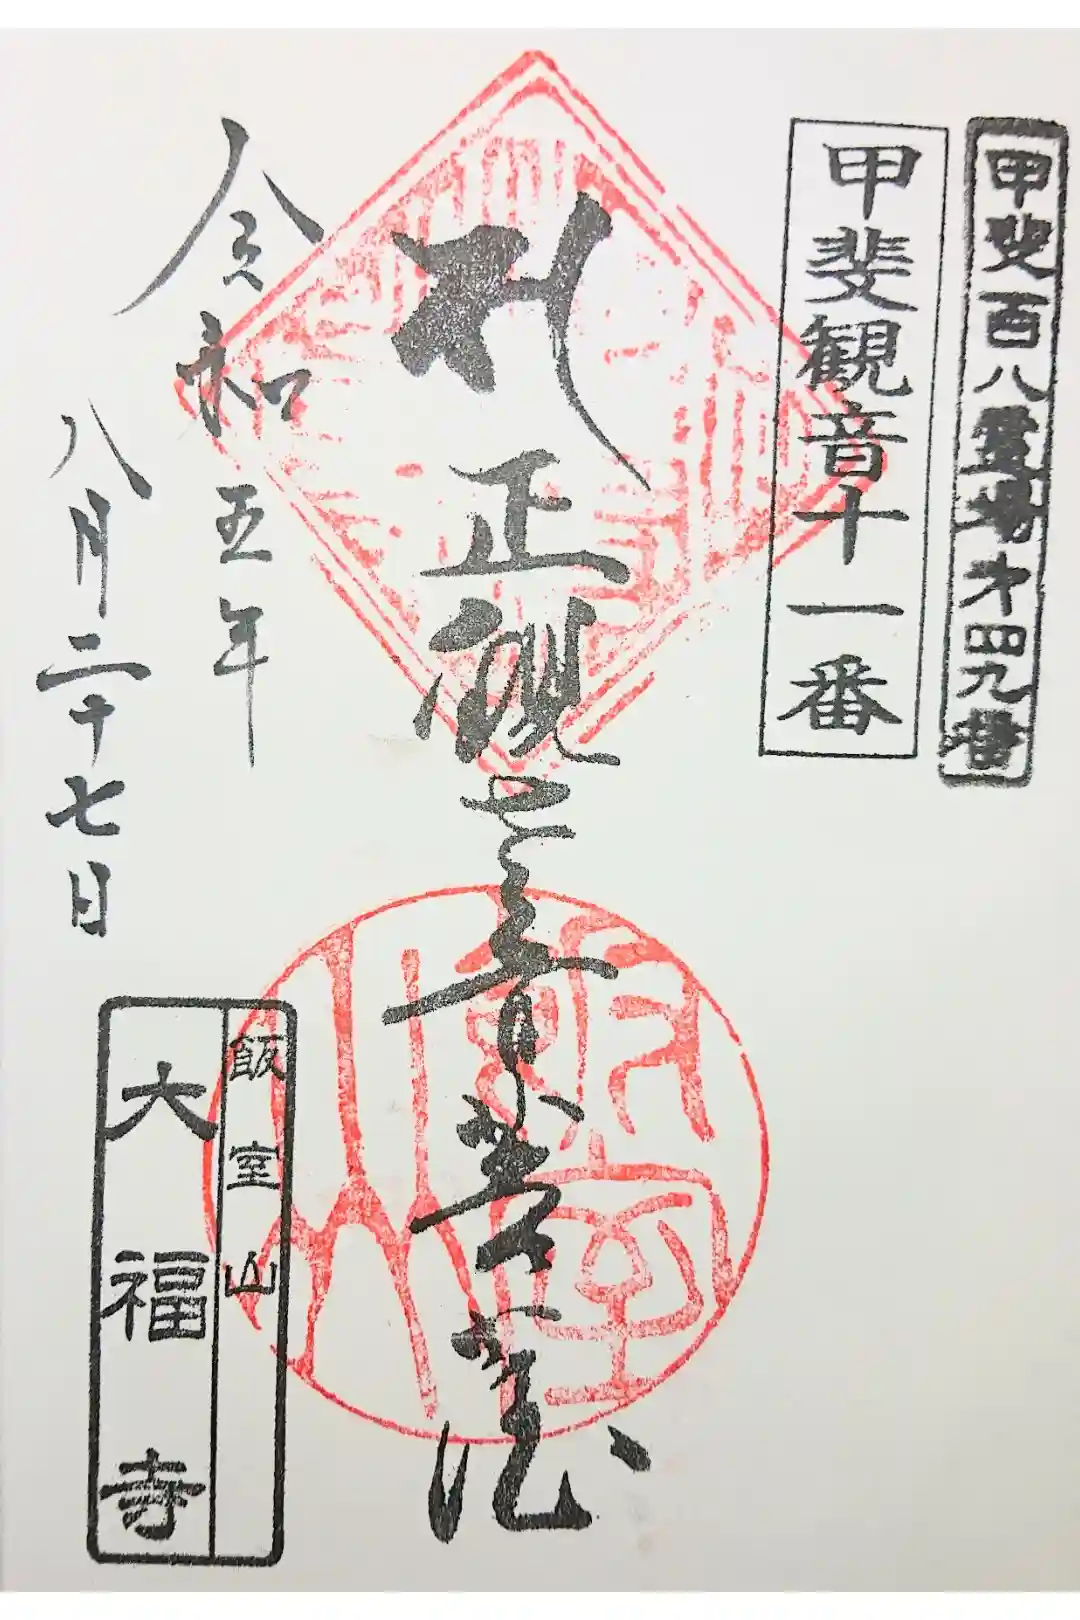 甲斐百八霊場才四九番
甲斐観音十一番
正観世音菩薩
令和五年
八月二十七日
飯室山
大福寺